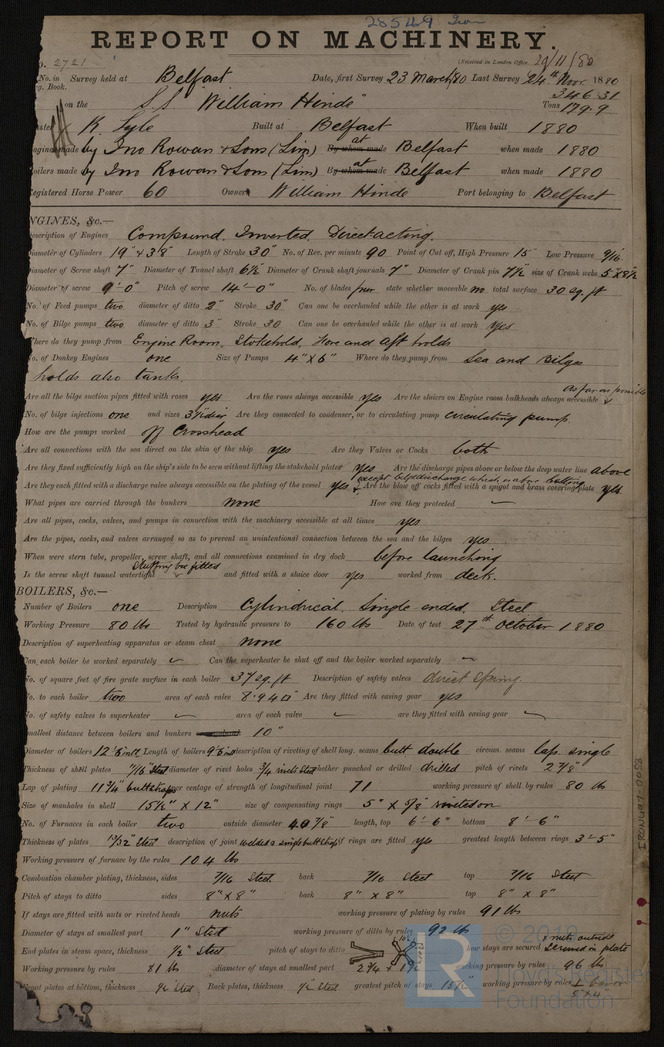 28549 Iron
REPORT ON MACHINERY.
No. 2721 (Received in London Office 29/11/80
No. in Survey held at Belfast Date, first Survey 23 March/80 Last Survey 24th Novr. 1880
g. Book. 346.31
on the S.S. "William Hinde" Tons 179.9
Master R. Lyle Built at Belfast When built 1880
Engines made by Jno Rowan & Sons (Lim) By whom made at Belfast when made 1880
Boilers made by Jno Rowan & Sons (Lim) By whom made at Belfast when made 1880
Registered Horse Power 60 Owners William Hinde Port belonging to Belfast
ENGINES, &c.—
Description of Engines Compound Inverted Direct acting.
Diameter of Cylinders 19" & 38" Length of Stroke 30" No. of Rev. per minute 90 Point of Cut off, High Pressure 15 Low Pressure 9/16
Diameter of Screw shaft 7" Diameter of Tunnel shaft 6½ Diameter of Crank shaft journals 7" Diameter of Crank pin 7½ size of Crank webs 5"x8½
Diameter of screw 9'-0" Pitch of screw 14'-0" No. of blades four state whether moveable no total surface 30 sq. ft
No. of Feed pumps two diameter of ditto 2" Stroke 30" Can one be overhauled while the other is at work yes
No. of Bilge pumps two diameter of ditto 3" Stroke 30 Can one be overhauled while the other is at work yes
Where do they pump from Engine Room, Stokehold, Fore and aft holds
No. of Donkey Engines one Size of Pumps 4"x6" Where do they pump from Sea and Bilges
holds also tanks.
As far as possible
Are all the bilge suction pipes fitted with roses yes Are the roses always accessible yes Are the sluices on Engine room bulkheads always accessible
No. of bilge injections one and sizes 3½" diar Are they connected to condenser, or to circulating pump circulating pump
How are the pumps worked off Crosshead
Are all connections with the sea direct on the skin of the ship yes Are they Valves or Cocks both
Are they fixed sufficiently high on the ship's side to be seen without lifting the stokehold plates yes Are the discharge pipes above or below the deep water line above
except bilge discharge which is above
Are they each fitted with a discharge valve always accessible on the plating of the vessel yes Are the blow off cocks fitted with a spigot and brass covering plate yes
What pipes are carried through the bunkers none How are they protected —
Are all pipes, cocks, valves, and pumps in connection with the machinery accessible at all times yes
Are the pipes, cocks, and valves arranged so as to prevent an unintentional connection between the sea and the bilges yes
When were stern tube, propeller, screw shaft, and all connections examined in dry dock before launching
Stuffing box fitted
Is the screw shaft tunnel watertight and fitted with a sluice door yes worked from deck.
BOILERS, &c.—
Number of Boilers one Description Cylindrical, Single ended, Steel
Working Pressure 80 lbs Tested by hydraulic pressure to 160 lbs Date of test 27th October 1880
Description of superheating apparatus or steam chest none
Can each boiler be worked separately — Can the superheater be shut off and the boiler worked separately —
No. of square feet of fire grate surface in each boiler 37 sq. ft Description of safety valves direct spring
No. to each boiler two area of each valve 8.94□" Are they fitted with easing gear yes
No. of safety valves to superheater — area of each valve — are they fitted with easing gear —
Smallest distance between boilers and bunkers 10"
Diameter of boilers Length of boilers description of riveting of shell long. seams butt double circum. seams lap single
Thickness of shell plates 11/16 Steel diameter of rivet holes whether punched or drilled drilled pitch of rivets 2 7/8"
Lap of plating 11¾" butt straps per centage of strength of longitudinal joint 71 working pressure of shell by rules 80 lbs
Size of manholes in shell 15½" x 12" size of compensating rings
No. of Furnaces in each boiler two outside diameter 40 7/8" length, top 6'-6" bottom 8'-6"
Thickness of plates 15/32" Steel description of joint welded & single butt strap if rings are fitted yes greatest length between rings 3'-5"
Working pressure of furnace by the rules 104 lbs
Combustion chamber plating, thickness, sides 7/16 Steel back 7/16 Steel top 7/16 Steel
Pitch of stays to ditto sides 8"x8" back 8"x8" top 8"x8"
If stays are fitted with nuts or riveted heads nuts working pressure of plating by rules 91 lbs
Diameter of stays at smallest part 1" Steel working pressure of ditto by rules 92 lbs
nuts outside
End plates in steam space, thickness ½" Steel pitch of stays to ditto how stays are secured screwed in plate
Working pressure by rules 81 lbs diameter of stays at smallest part working pressure by rules 96 lbs
Front plates at bottom, thickness ½ Steel Back plates, thickness ½ Steel greatest pitch of stays working pressure by rules
© 2019
Lloyd's Register
Foundation
LR
IRON497-0053